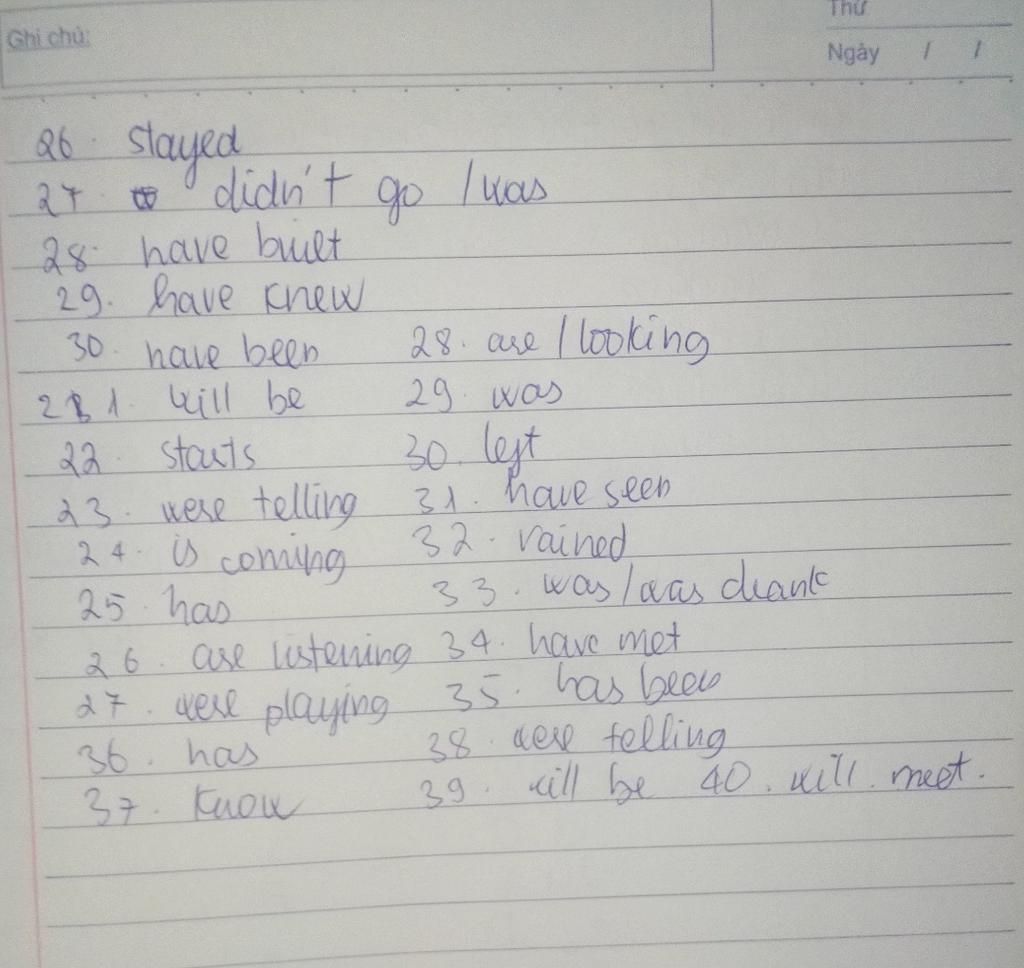 Ghi chú:
Thứ
Ngày / /
26. stayed
27. didn't go / was
28. have built
29. have knew
30. have been 28. are / looking
21. will be 29. was
22. starts 30. left
23. were telling 31. have seen
24. is coming 32. rained
25. has 33. was / was drank
26. are listening 34. have met
27. were playing 35. has been
36. has 38. were telling
37. know 39. will be 40. will meet.